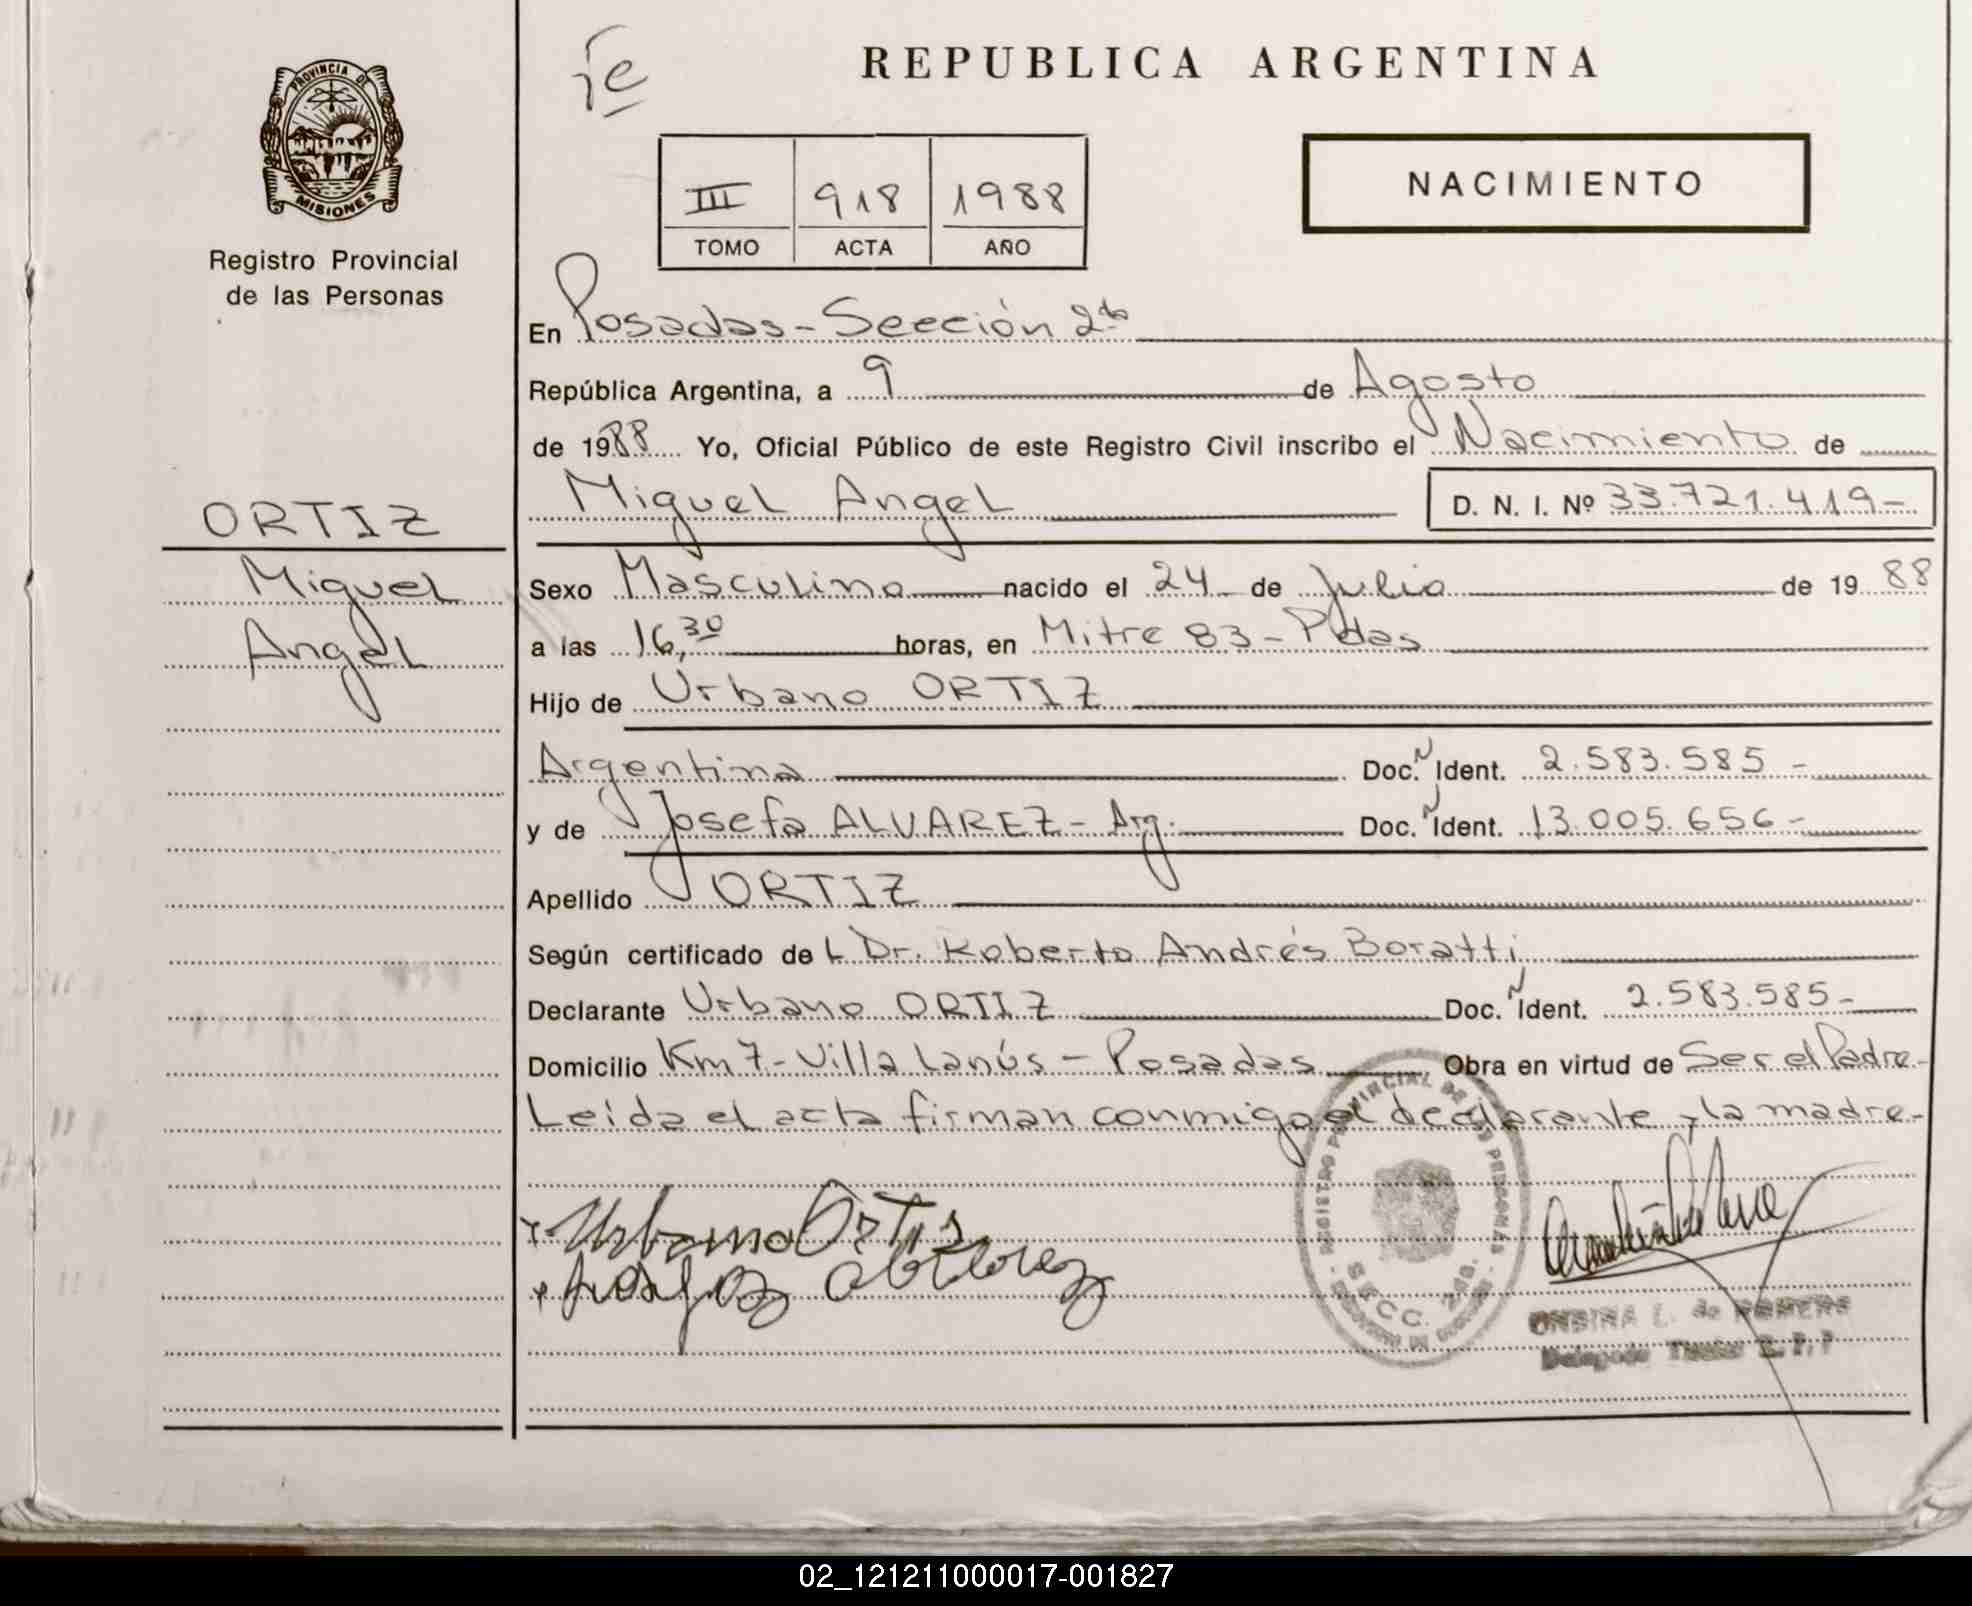 PROVINCIA DE
MISIONES
Registro Provincial
de las Personas
ORTIZ
Miguel
Angel
REPUBLICA ARGENTINA
III 918 1988
TOMO ACTA AÑO
NACIMIENTO
En Posadas - Sección 2da
República Argentina, a 9 de Agosto
de 1988 Yo, Oficial Público de este Registro Civil inscribo el Nacimiento de
Miguel Angel D. N. I. Nº 33.721.419-
Sexo Masculino nacido el 24 de Julio de 19 88
a las 16,30 horas, en Mitre 83 - Pdas
Hijo de Urbano ORTIZ
Argentina Doc. Ident. 2.583.585 -
y de Josefa ALVAREZ - Arg. Doc. Ident. 13.005.656 -
Apellido ORTIZ
Según certificado de L Dr. Roberto Andrés Boratti
Declarante Urbano ORTIZ Doc. Ident. 2.583.585 -
Domicilio Km 7 - Villa Lanús - Posadas Obra en virtud de Ser el Padre -
Leída el acta firman conmigo el declarante y la madre -
Urbano Ortiz
REGISTRO PROVINCIAL DE LAS PERSONAS
SECC. 2da.
ONDINA L. de ROMERO
02_121211000017-001827